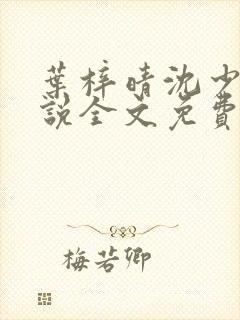 葉梓晴沈少
說全文免費
梅若卿